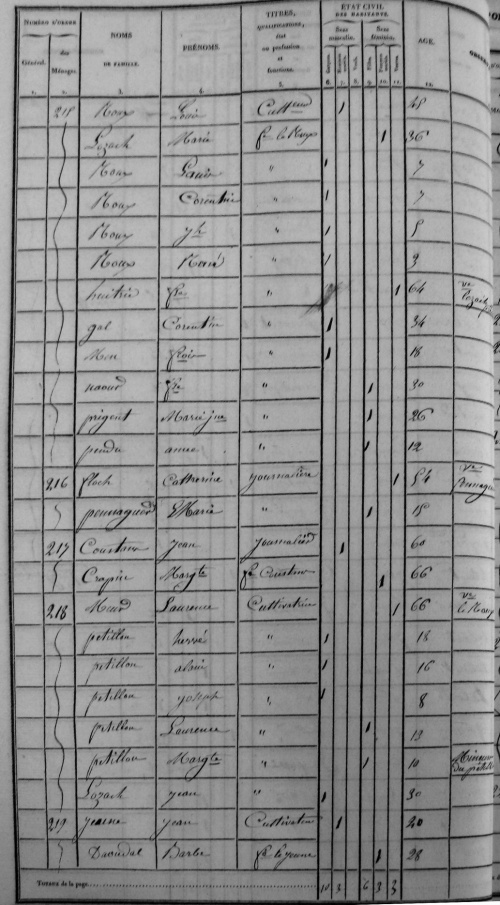 NUMÉRO D'ORDRE NOMS PRÉNOMS. TITRES, QUALIFICATIONS, état ou profession et fonctions. ÉTAT CIVIL DES HABITANTS. AGE.
Général. des Ménages. DE FAMILLE. Sexe masculin. Sexe féminin.
1. 2. 3. 4. 5. 6. 7. 8. 9. 10. 11. 12.
215 Roux Louis 1 45
Lozach Marie fe le Roux 1 36
Roux Louis " 1 7
Roux Corentin " 1 7
Roux jh " 1 5
Roux René " 1 3
huitric fse " 1 64 ve
gal Corentin " 1 34
Meur flois " 1 18
naour fse " 1 30
prigent Marie jne " 1 26
pendu anne " 1 12
216 floch Catherine journalière 1 54 ve
pennaguer Marie " 1 15
217 Coustans jean journalier 1 60
Crapin Margte fe Coustans 1 66
218 Meur Laurence Cultivatrice 1 66 ve
petillon hervé " 1 18
petillon alain " 1 16
petillon yoseph " 1 8
petillon Laurence " 1 13
petillon Margte " 1 10 Mineurs
Lozach jean " 1 30
219 jeune jean Cultivateur 1 40
Daoudal Barbe fe le jeune 1 28
Totaux de la page 10 3 6 3 3